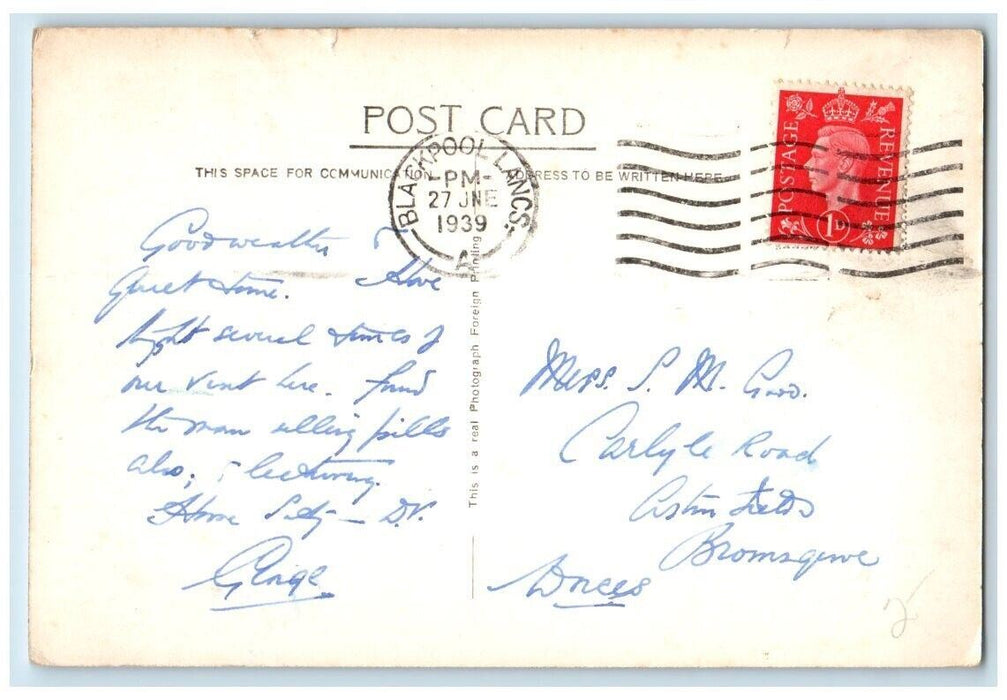 POST CARD
THIS SPACE FOR COMMUNICATION ADDRESS TO BE WRITTEN HERE
BLACKPOOL LANCS.
-PM-
27 JNE
1939
POSTAGE REVENUE
1D
This is a real Photograph Foreign Printing
Good weather
Quiet time. Have
several times of
our visit here. Found
the man selling pills
also; lecturing.
Home Satdy — D.V.
George
S. M.
Carlyle Road
Aston Fields
Bromsgrove
Worcs
2